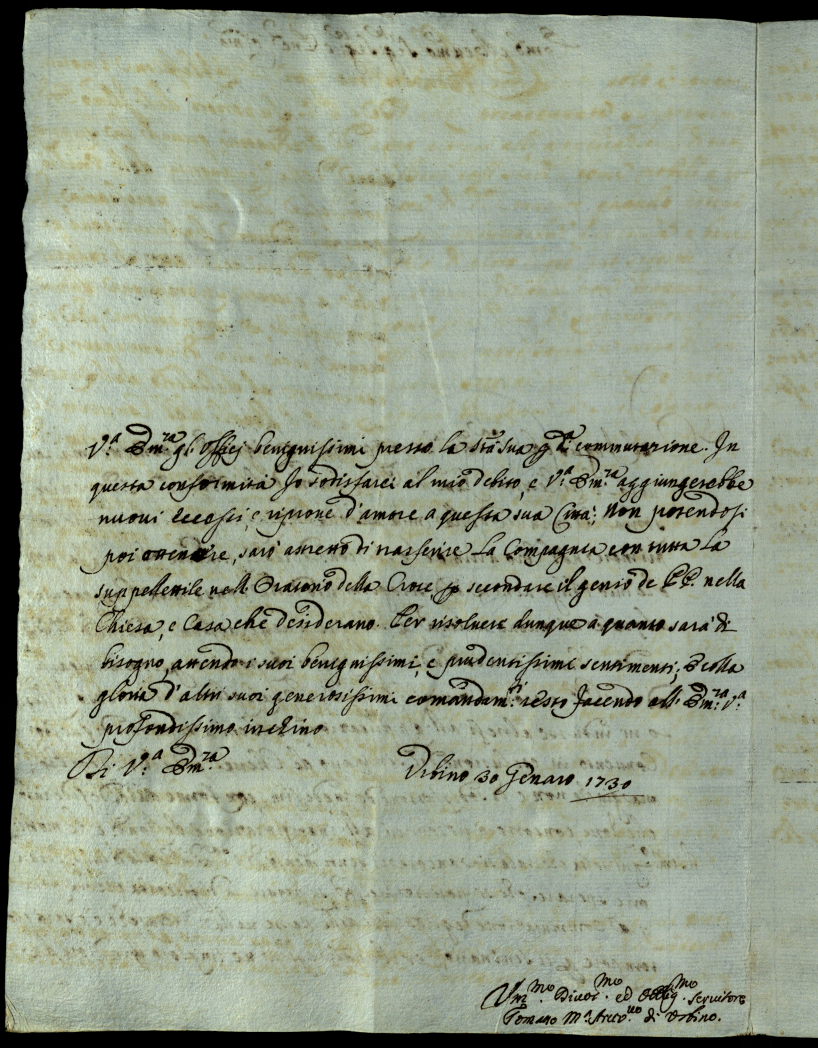 V.ª Em.ᶻᵃ gl'Officj benignissimi presso la Stà Sua p la commutazione. In
questa conformità Io sodisfarei al mio debito, e V.ª Em.ᶻᵃ aggiungerebbe
nuovi eccessi, e d'amore a questa sua Città; Non potendosi
poi ottenere, sarò astretto di trasferire la Compagnia con tutta la
suppellettile nell'Oratorio della Croce, p secondare il genio de PP. nella
Chiesa, e Casa che desiderano. Per risolvere dunque a quanto sarà di
bisogno, attendo i suoi benignissimi, e prudentissimi sentimenti; E colla
gloria d'altri suoi generosissimi comandam.ᵗⁱ resto facendo all'Em.ᶻᵃ V.ª
profondissimo inchino
Di V.ª Em.ᶻᵃ
Urbino 30 Gennaro 1730
Um.ᵐᵒ Divot.ᵐᵒ ed Obblig.ᵐᵒ Servitore
Tomaso M.ª Arciv.ᵛᵒ di Urbino.